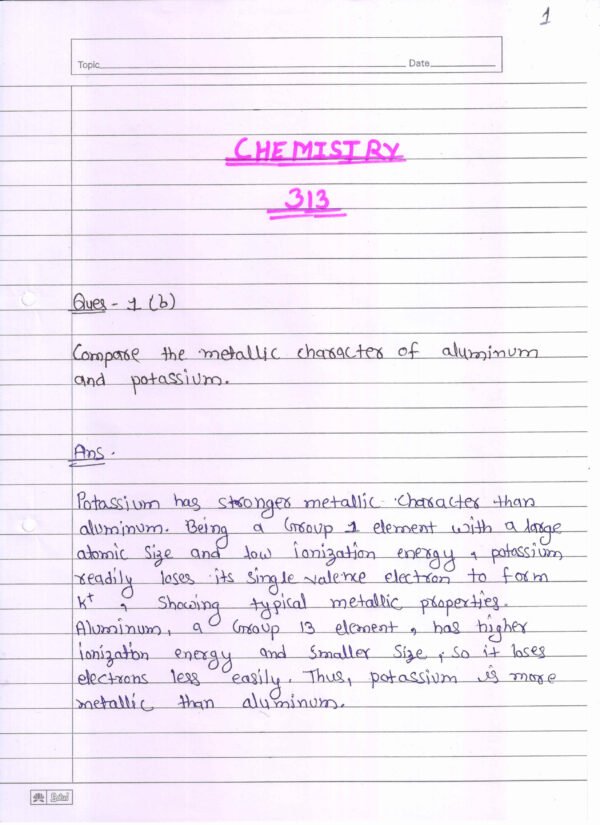 1
Topic Date
CHEMISTRY
313
Ques - 1 (b)
Compare the metallic character of aluminum
and potassium.
Ans.
Potassium has stronger metallic character than
aluminum. Being a Group 1 element with a large
atomic size and low ionization energy, potassium
readily loses its single valence electron to form
K+, showing typical metallic properties.
Aluminum, a Group 13 element, has higher
ionization energy and smaller size, so it loses
electrons less easily. Thus, potassium is more
metallic than aluminum.